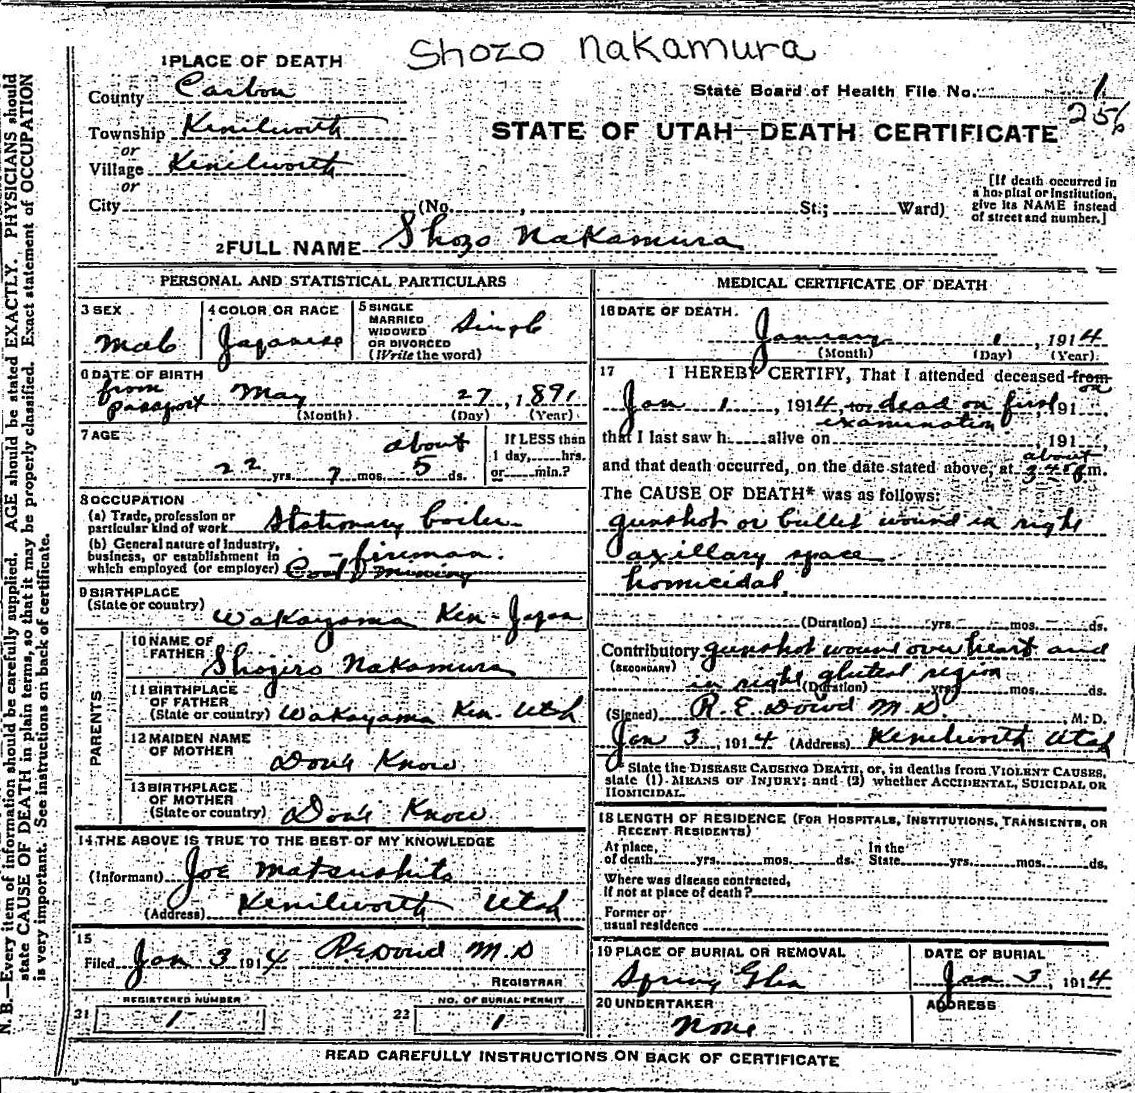 Shozo Nakamura
1 PLACE OF DEATH
County Carbon
State Board of Health File No. 1
256
Township Kenilworth
or
STATE OF UTAH—DEATH CERTIFICATE
Village Kenilworth
or
City (No. , St.; Ward)
[If death occurred in
a hospital or institution,
give its NAME instead
of street and number.]
2 FULL NAME Shozo Nakamura
PERSONAL AND STATISTICAL PARTICULARS
3 SEX
Male
4 COLOR OR RACE
Japanese
5 SINGLE
MARRIED
WIDOWED
OR DIVORCED
(Write the word)
Single
6 DATE OF BIRTH
from
passport May 27, 1891
(Month) (Day) (Year)
7 AGE
about
22 yrs. 7 mos. 5 ds.
If LESS than
1 day, hrs.
or min.?
8 OCCUPATION
(a) Trade, profession or
particular kind of work Stationary boiler
(b) General nature of industry,
business, or establishment in
which employed (or employer)
- fireman.
Coal mining
9 BIRTHPLACE
(State or country) Wakayama Ken - Japan
PARENTS
10 NAME OF
FATHER Shojiro Nakamura
11 BIRTHPLACE
OF FATHER
(State or country) Wakayama Ken. Utah
12 MAIDEN NAME
OF MOTHER
Don't Know
13 BIRTHPLACE
OF MOTHER
(State or country) Don't Know
14 THE ABOVE IS TRUE TO THE BEST OF MY KNOWLEDGE
(Informant) Joe Matsushita
(Address) Kenilworth Utah
15
Filed Jan 3 1914 R E Dowd M.D
REGISTRAR
REGISTERED NUMBER
21 1
NO. OF BURIAL PERMIT
22 1
MEDICAL CERTIFICATE OF DEATH
16 DATE OF DEATH.
January 1, 1914
(Month) (Day) (Year)
17 I HEREBY CERTIFY, That I attended deceased from
on
Jan 1, 1914, to dead on first 191
examination
that I last saw h alive on , 191 ,
about
and that death occurred, on the date stated above, at m.
The CAUSE OF DEATH* was as follows:
gunshot or bullet wound in right
axillary space
homicidal
(Duration) yrs. mos. ds.
Contributory gunshot wound over heart and
(SECONDARY)
in right gluteal region
(Duration) yrs. mos. ds.
(Signed) R. E. Dowd M.D. M. D.
Jan 3, 1914 (Address) Kenilworth Utah
* State the DISEASE CAUSING DEATH, or, in deaths from VIOLENT CAUSES,
state (1) MEANS OF INJURY; and (2) whether ACCIDENTAL, SUICIDAL OR
HOMICIDAL.
18 LENGTH OF RESIDENCE (FOR HOSPITALS, INSTITUTIONS, TRANSIENTS, OR
RECENT RESIDENTS)
At place,
of death yrs. mos. ds.
In the
State yrs. mos. ds.
Where was disease contracted,
if not at place of death?
Former or
usual residence
19 PLACE OF BURIAL OR REMOVAL
Spring Glen
DATE OF BURIAL
Jan 3, 1914
20 UNDERTAKER
None
ADDRESS
READ CAREFULLY INSTRUCTIONS ON BACK OF CERTIFICATE
N. B.—Every item of information should be carefully supplied. AGE should be stated EXACTLY. PHYSICIANS should
state CAUSE OF DEATH in plain terms, so that it may be properly classified. Exact statement of OCCUPATION
is very important. See instructions on back of certificate.